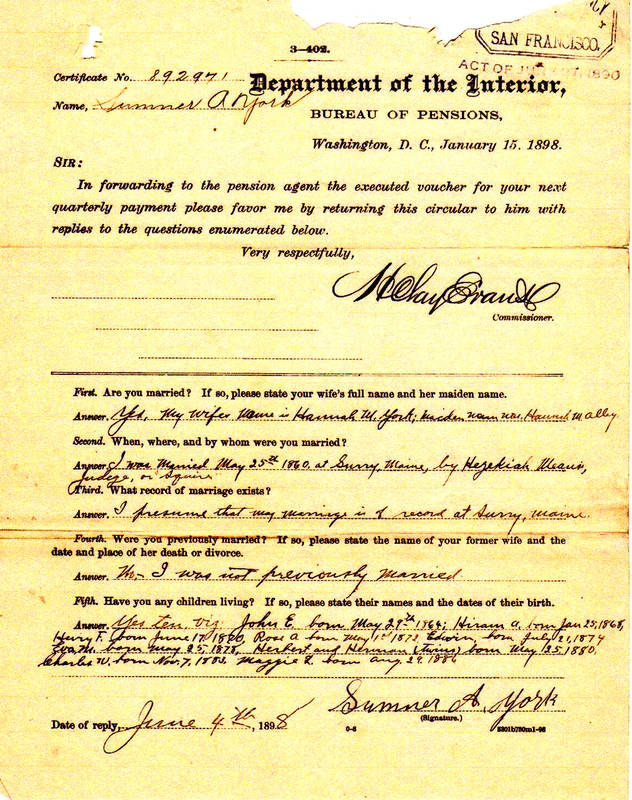 SAN FRANCISCO.
3—402.
ACT OF 1890
Certificate No. 892971
Department of the Interior,
Name, Sumner A York
BUREAU OF PENSIONS,
Washington, D. C., January 15, 1898.
SIR:
In forwarding to the pension agent the executed voucher for your next
quarterly payment please favor me by returning this circular to him with
replies to the questions enumerated below.
Very respectfully,
H Clay Evans
Commissioner.
First. Are you married? If so, please state your wife's full name and her maiden name.
Answer. Yes, My wifes name is Hannah M. York; maiden nam was, Hannah M alley
Second. When, where, and by whom were you married?
Answer. I was Married May 25th 1860, at Surry, Maine, by Hezekiah Means,
Judge, or Squire
Third. What record of marriage exists?
Answer. I presume that my marriage is of record at Surry, Maine.
Fourth. Were you previously married? If so, please state the name of your former wife and the
date and place of her death or divorce.
Answer. No- I was not previously married
Fifth. Have you any children living? If so, please state their names and the dates of their birth.
Answer. Yes ten, viz John E. born May 29th 1864; Hiram A. born Jan 25, 1868,
Henry F. born June 17, Rose A born May 1st 1873 Edwin, born July 21, 1874
Eva, M. born May 25, 1878, Herbert and Herman (twins) born May 25 1880,
Charles W, born Nov. 7, 1883 Maggie L born Aug. 29 1886
Sumner A. York
(Signature.)
Date of reply, June 4th, 1898
0-6
5301b750m1-98